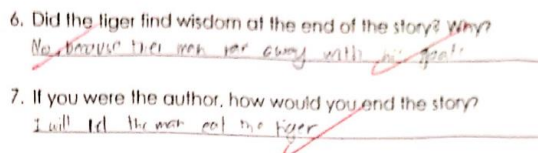 6. Did the tiger find wisdom at the end of the story? Why?
No, because the man ran away with his goats
7. If you were the author, how would you end the story?
I will let the man eat the tiger